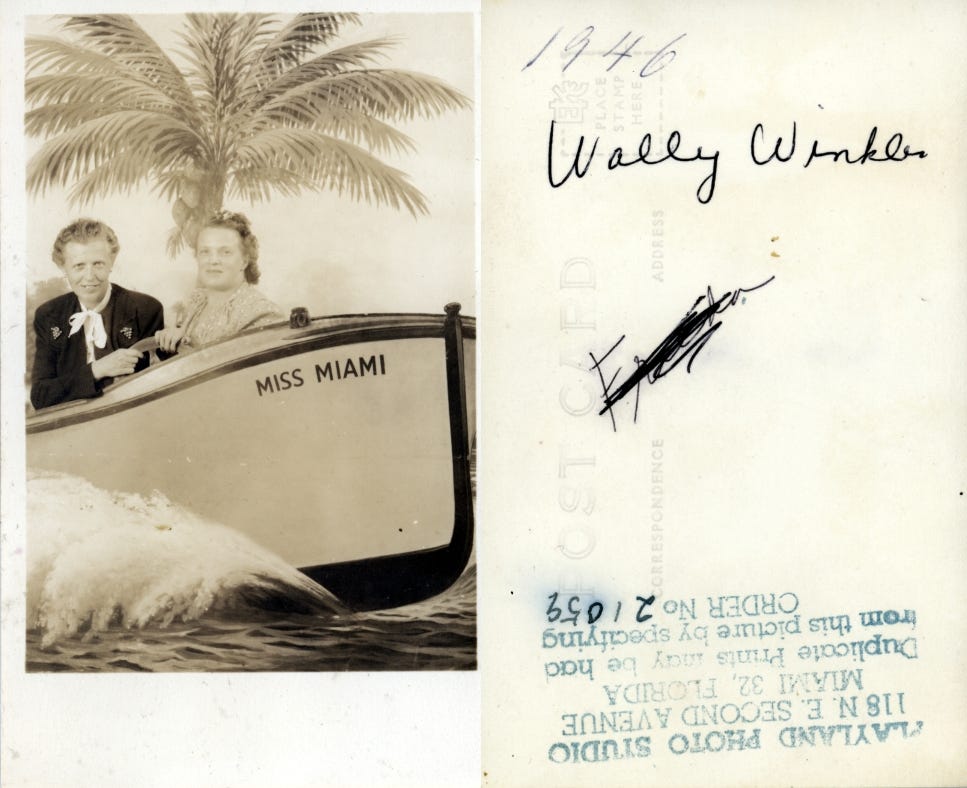 MISS MIAMI
1946
PLACE
STAMP
HERE
Wally Winkler
POST CARD
ADDRESS
CORRESPONDENCE
PLAYLAND PHOTO STUDIO
118 N. E. SECOND AVENUE
MIAMI 32, FLORIDA
Duplicate Prints may be had
from this picture by specifying
ORDER No 21059